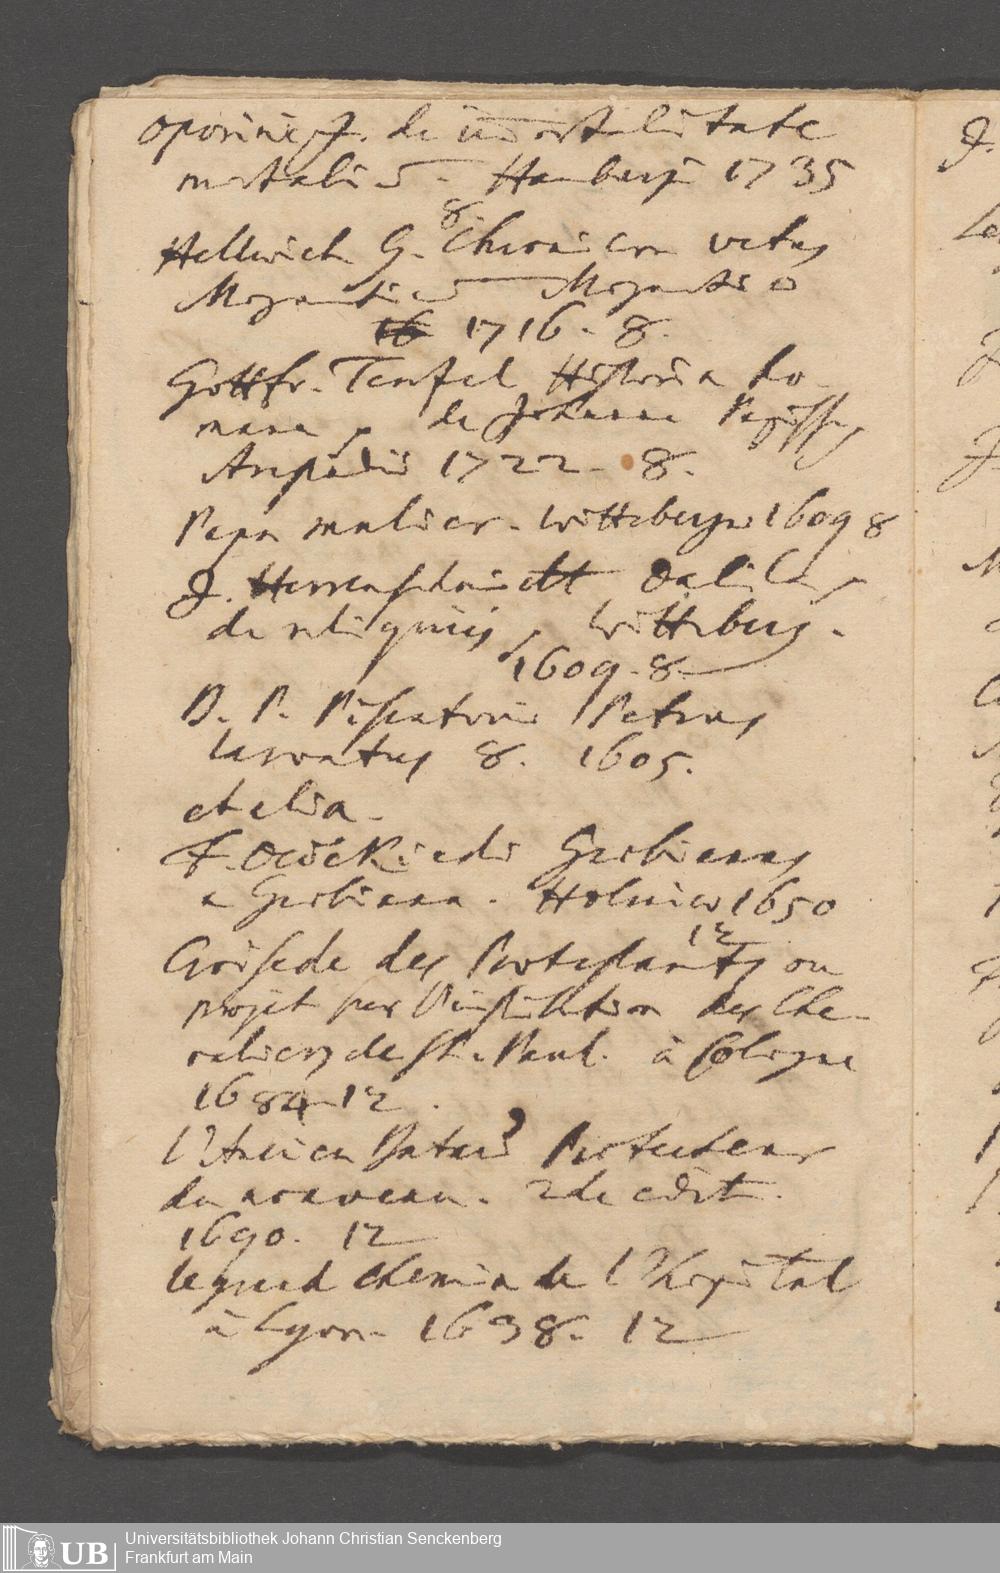 Oporini J. de immortalitate
mortaliū - Hamburgi 1735
8
Hellwich G. Chronicon vetus
Mogunticū Moguntiæ
16 1716 - 8.
Gottfr. Teufel Historia Ro-
mana de Johanna Papissa
1722 - 8.
Papa mulier. Wittebergæ 1609 8
J. Herrenschmidt
de reliquiis, Witteberg.
1609. 8
B. P. Piscatoris Petrus
larvatus 8. 1605.
et alia.
F. Dedekindi Grobianus
e Grobiana. 1650
12
Croisede des Protestants ou
projet sur l'institution des Che-
valiers de St. Paul. à Cologne
1684 12.
l'Ancien Batard Protecteur
du nouveau. 2de edit.
1690. 12
le grand chemin de l'Hopital
à Lyon. 1638. 12
Universitätsbibliothek Johann Christian Senckenberg
Frankfurt am Main
UB